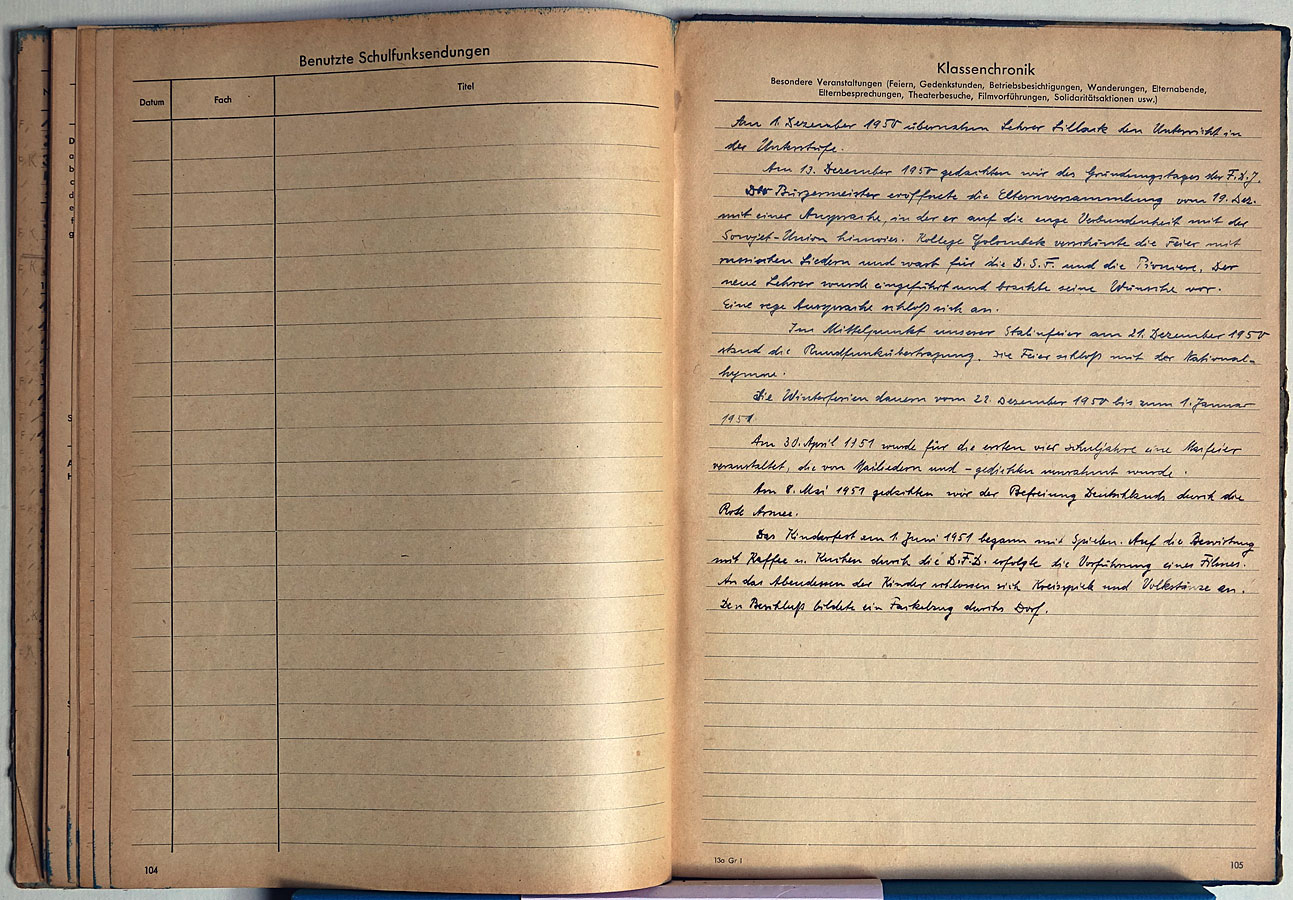 Benutzte Schulfunksendungen
Datum
Fach
Titel
104
Klassenchronik
Besondere Veranstaltungen (Feiern, Gedenkstunden, Betriebsbesichtigungen, Wanderungen, Elternabende,
Elternbesprechungen, Theaterbesuche, Filmvorführungen, Solidaritätsaktionen usw.)
Am 1. Dezember 1950 übernahm Lehrer den Unterricht in
der Unterstufe.
Am 13. Dezember 1950 gedachten wir des Gründungstages der F.D.J.
Der Bürgermeister eröffnete die Elternversammlung vom 19. Dez.
mit einer Ansprache, in der er auf die enge Verbundenheit mit der
Sowjet-Union hinwies. Kollege Golombek verschönte die Feier mit
russischen Liedern und warb für die D.S.F. und die Pioniere. Der
neue Lehrer wurde eingeführt und brachte seine Wünsche vor.
Eine rege Aussprache schloß sich an.
Im Mittelpunkt unserer Stalinfeier am 21. Dezember 1950
stand die Rundfunkübertragung. Die Feier schloß mit der National-
hymne.
Die Winterferien dauern vom 22. Dezember 1950 bis zum 1. Januar
1951.
Am 30. April 1951 wurde für die ersten vier Schuljahre eine Maifeier
veranstaltet, die von Mailiedern und -gedichten umrahmt wurde.
Am 8. Mai 1951 gedachten wir der Befreiung Deutschlands durch die
Rote Armee.
Das Kinderfest am 1. Juni 1951 begann mit Spielen. Auf die Bewirtung
mit Kaffee u. Kuchen durch die D.F.D. erfolgte die Vorführung eines Filmes.
An das Abendessen der Kinder schlossen sich Kreisspiele und Volkstänze an.
Den Beschluß bildete ein Fackelzug durchs Dorf.
13a Gr I
105